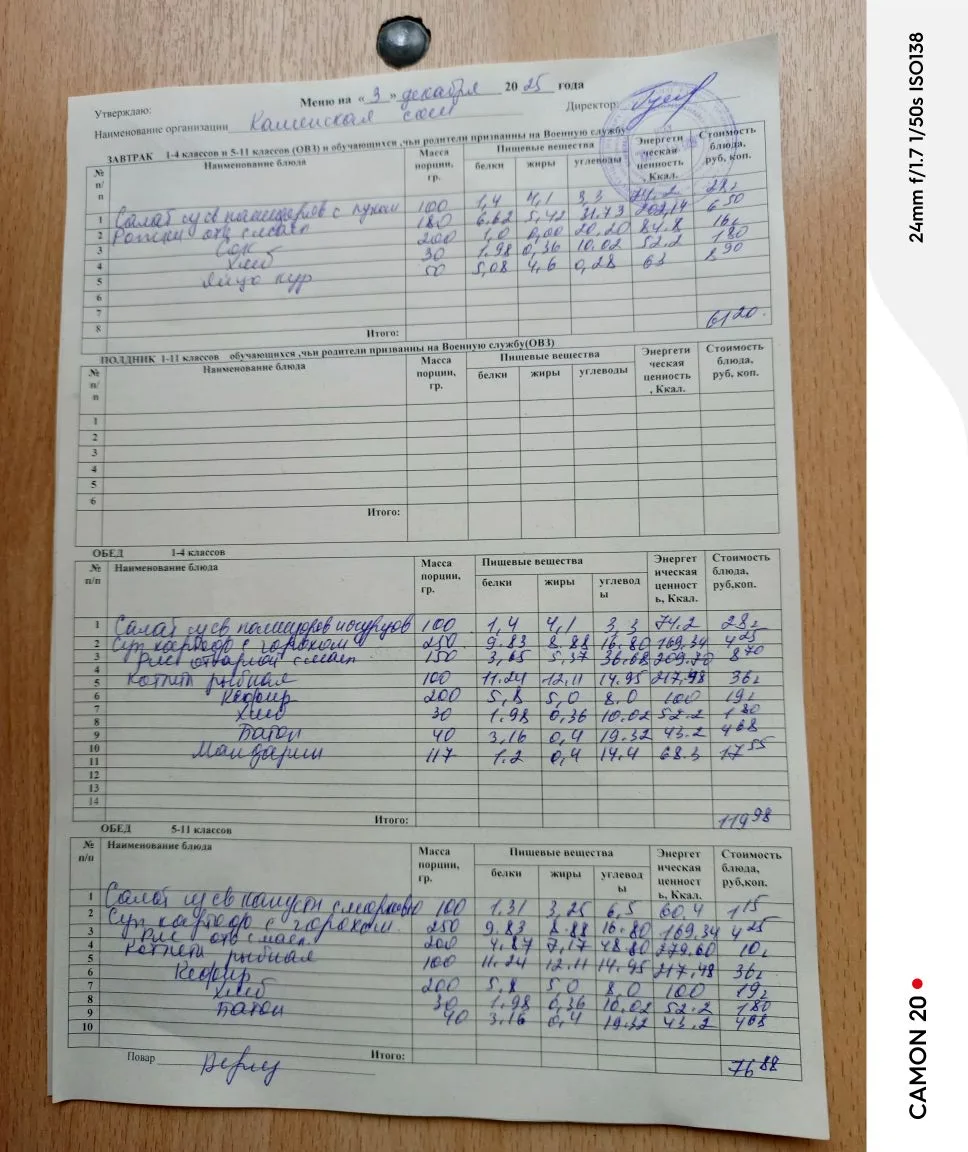 Меню на « 3 » декабря 2025 года
Утверждаю:
Директор:
Наименование организации Каменская сош
ЗАВТРАК 1-4 классов и 5-11 классов (ОВЗ) и обучающихся ,чьи родители призванны на Военную службу
№ п/п Наименование блюда Масса порции, гр. Пищевые вещества Энергетическая ценность, Ккал. Стоимость блюда, руб, коп.
белки жиры углеводы
1 Салат из св помидоров с луком 100 1,4 4,1 3,3 74.2 28,
2 Рожки отв с масл 180 6.62 5,42 31.73 202,14 6 50
3 Сок 200 1,0 0,00 20,20 84.8 16,
4 Хлеб 30 1.98 0,36 10.02 52.2 1 80
5 Яйцо кур 50 5,08 4,6 0,28 63 8 90
6
7
8
Итого: 61 20
ПОЛДНИК 1-11 классов обучающихся ,чьи родители призванны на Военную службу(ОВЗ)
№ п/п Наименование блюда Масса порции, гр. Пищевые вещества Энергетическая ценность, Ккал. Стоимость блюда, руб, коп.
белки жиры углеводы
1
2
3
4
5
6
Итого:
ОБЕД 1-4 классов
№ п/п Наименование блюда Масса порции, гр. Пищевые вещества Энергетическая ценность, Ккал. Стоимость блюда, руб,коп.
белки жиры углеводы
1 Салат из св помидоров и огурцов 100 1,4 4,1 3,3 74.2 28,
2 Суп картоф с горохом 250 9.83 8.88 16.80 169.34 4 25
3 Рис отварной с масл 150 3,65 5,37 36.68 209.70 8 70
4
5 Котлета рыбная 100 11.24 12,11 14.95 217,48 36,
6 Кефир 200 5,8 5,0 8,0 100 19,
7 Хлеб 30 1.98 0,36 10.02 52.2 1 80
8
9 Батон 40 3,16 0,4 19.32 43.2 4 68
10 Мандарин 117 1.2 0,4 14.4 68.3 17 55
11
12
13
14
Итого: 119 98
ОБЕД 5-11 классов
№ п/п Наименование блюда Масса порции, гр. Пищевые вещества Энергетическая ценность, Ккал. Стоимость блюда, руб,коп.
белки жиры углеводы
1 Салат из св капусты с морковью 100 1,31 3,25 6,5 60,4 1 15
2 Суп картоф с горохом 250 9.83 8.88 16.80 169,34 4 25
3 Рис отв с масл 200 4.87 7,17 48.80 279,60 10,
4
5 Котлета рыбная 100 11.24 12.11 14.95 217,48 36,
6 Кефир 200 5,8 5,0 8,0 100 19,
7 Хлеб 30 1.98 0,36 10,02 52.2 1 80
8 Батон 40 3,16 0,4 19.32 43.2 4 68
9
10
Повар Итого: 76 88
24mm f/1.7 1/50s ISO138
CAMON 20